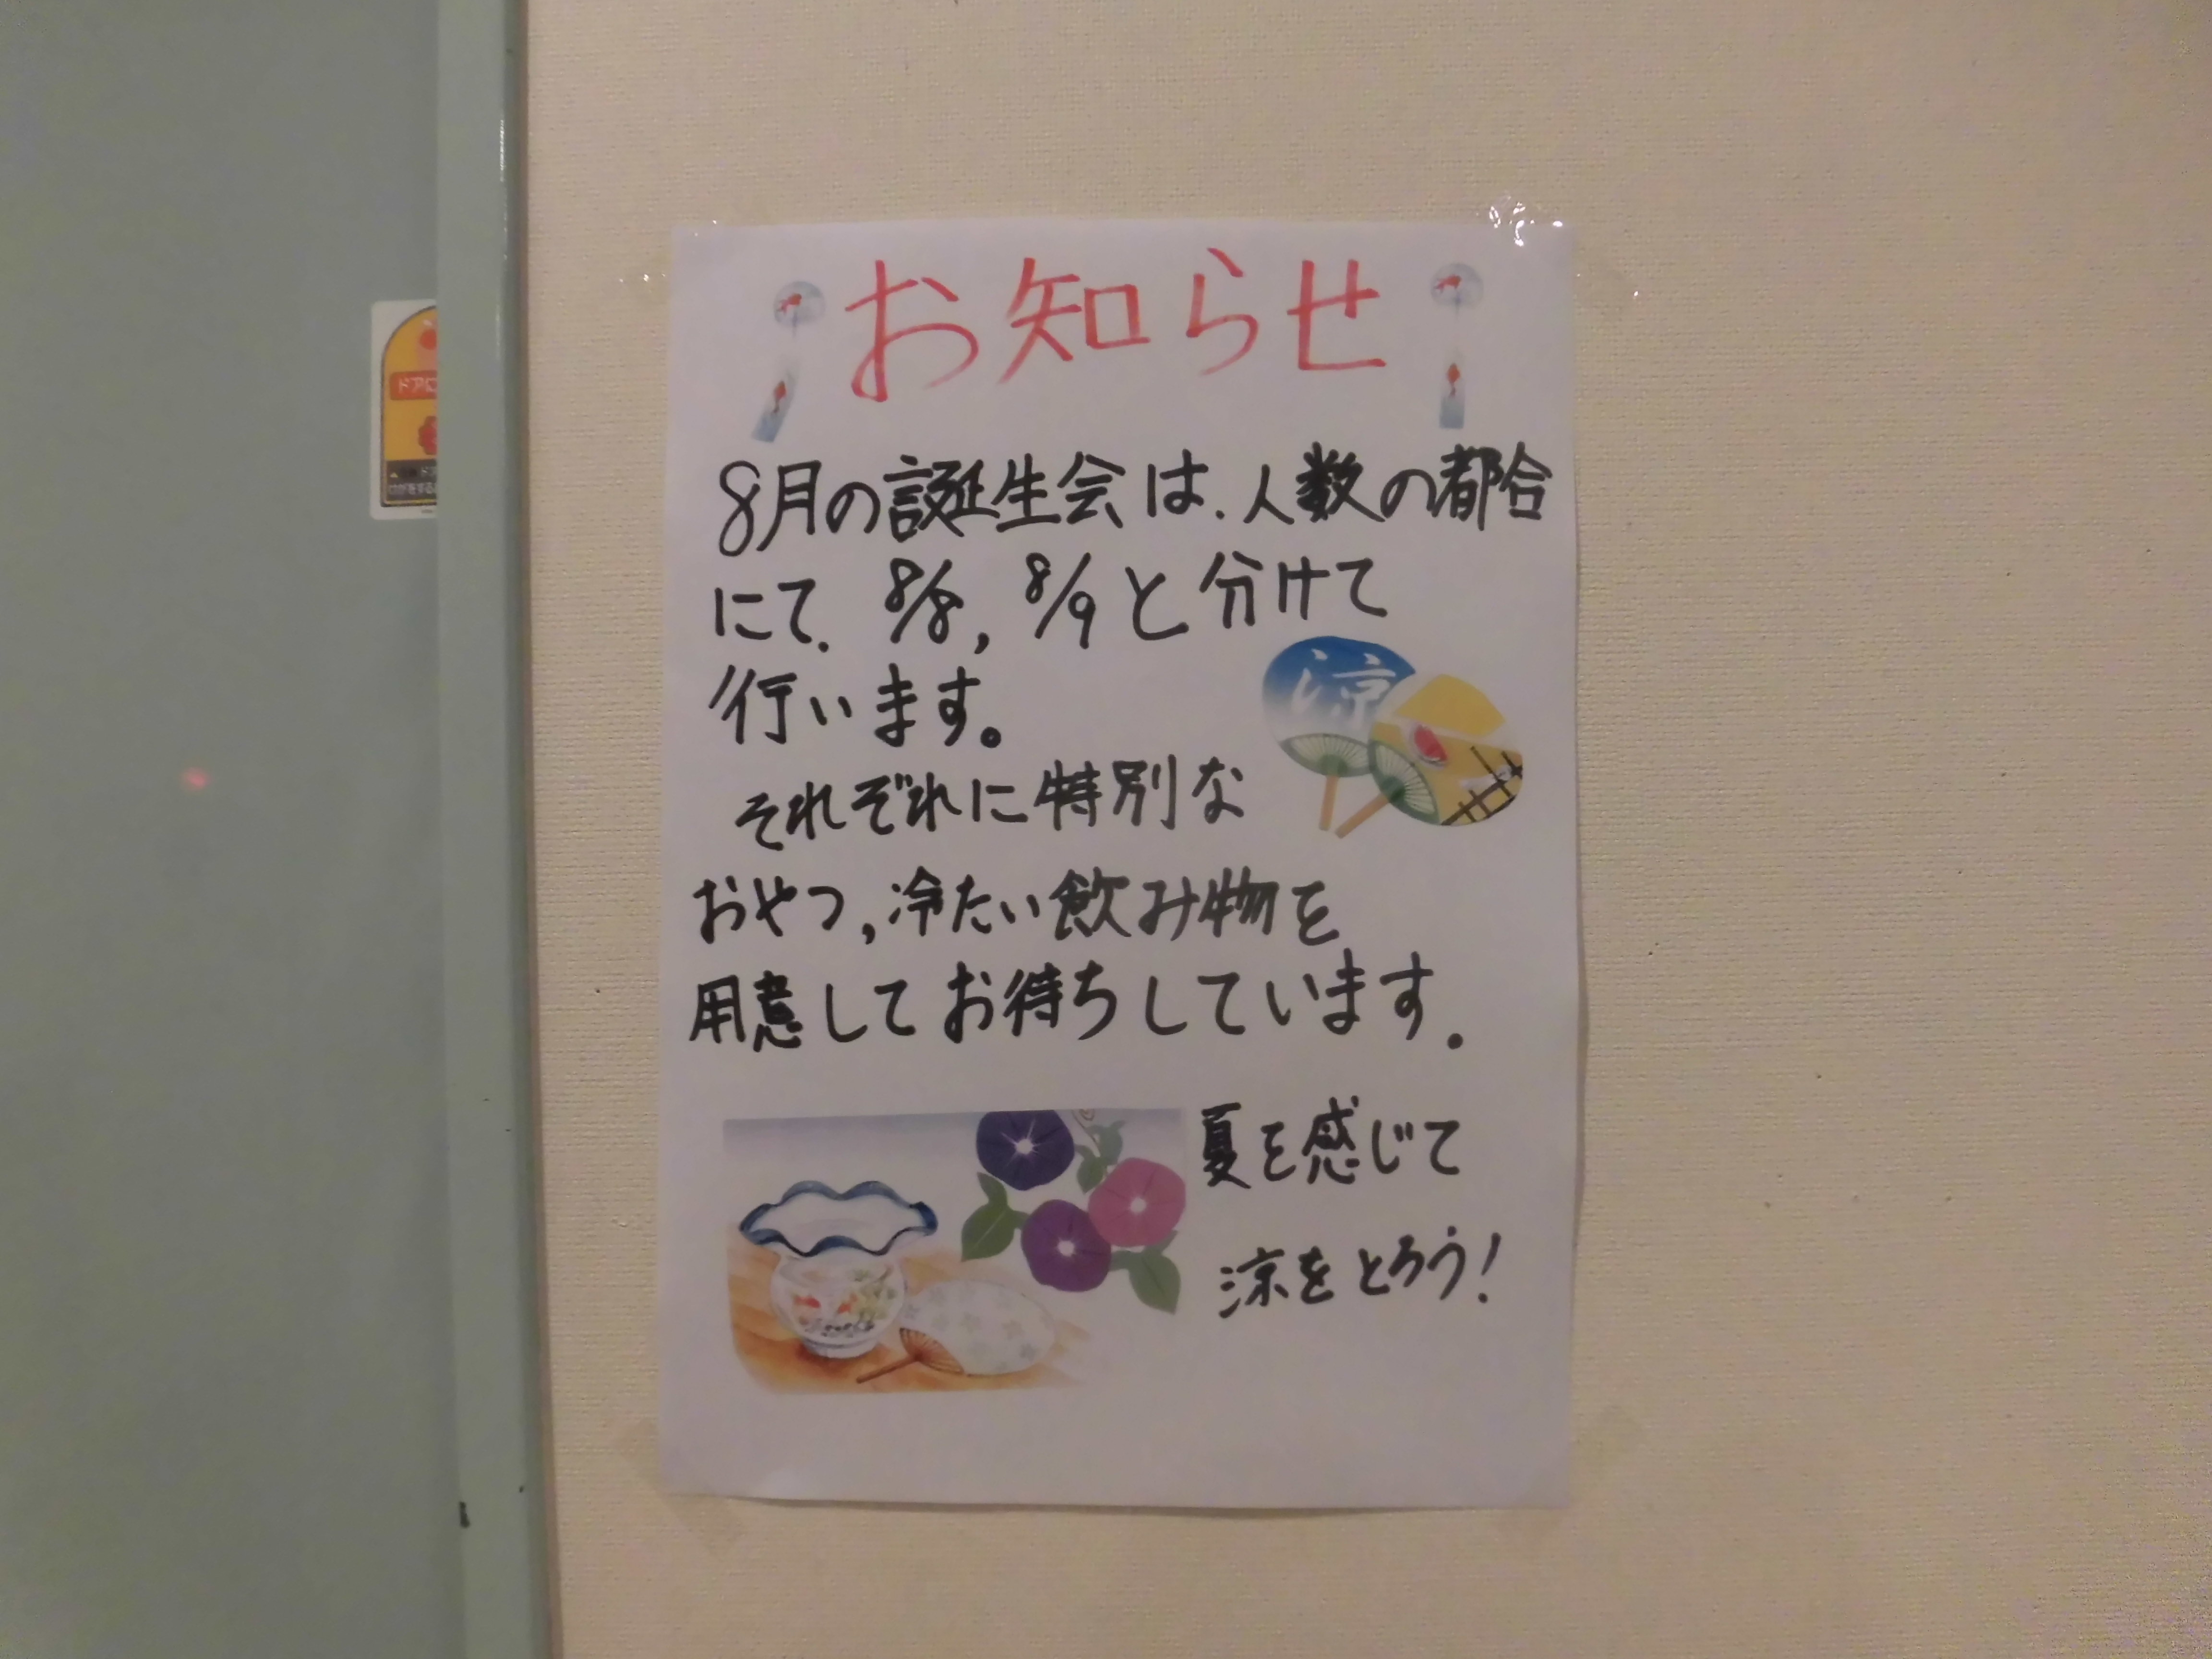 お知らせ
8月の誕生会は、人数の都合
にて、8/8, 8/9と分けて
行います。
それぞれに特別な
おやつ,冷たい飲み物を
用意してお待ちしています.
涼
夏を感じて
涼をとろう!
ドアに